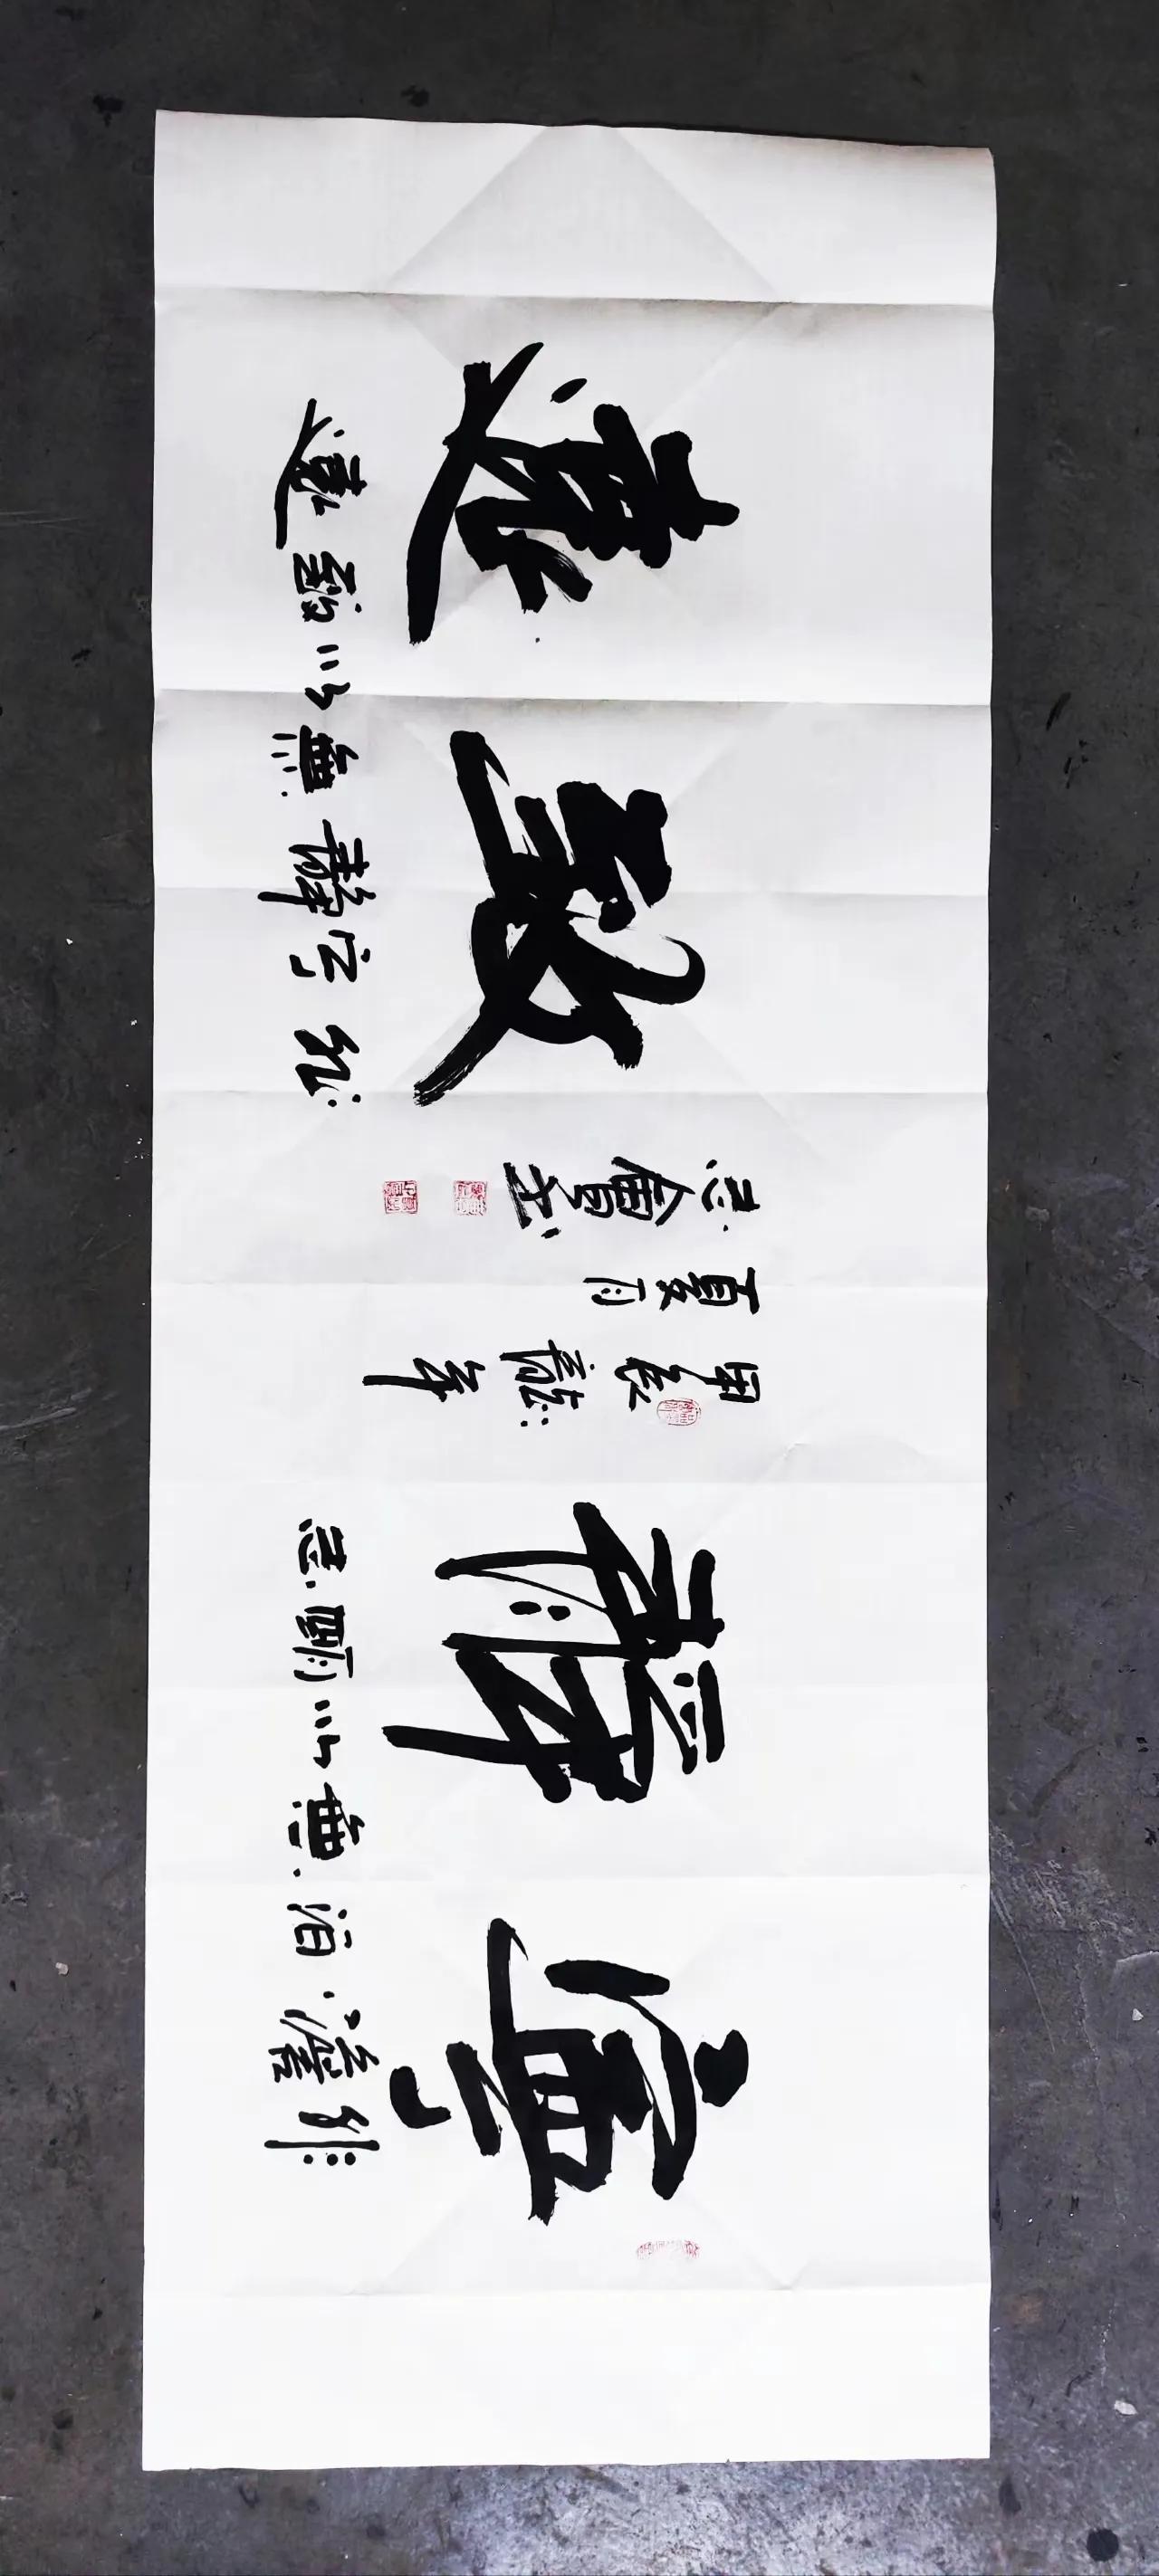 寧靜致遠
非澹泊無以明志
非寧靜無以致遠
甲辰龍年
夏月
志會書